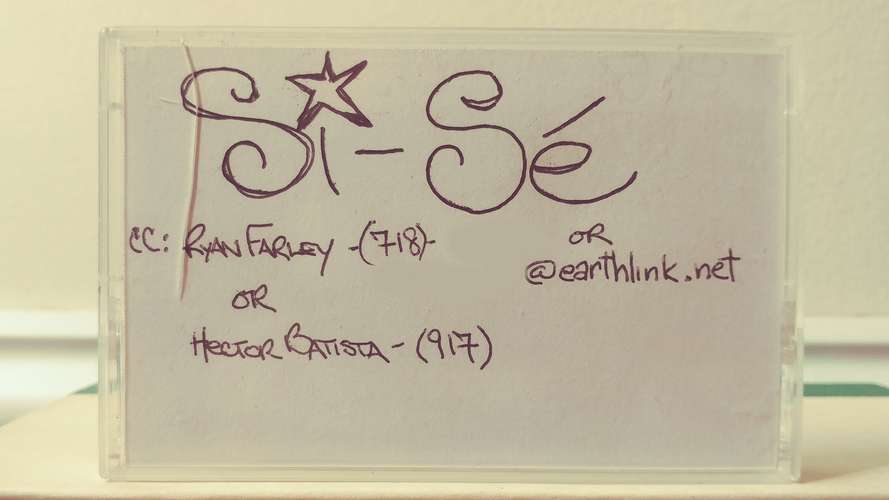 Si-Sé
CC: RYAN FARLEY -(718)-
OR
@earthlink.net
OR
HECTOR BATISTA - (917)